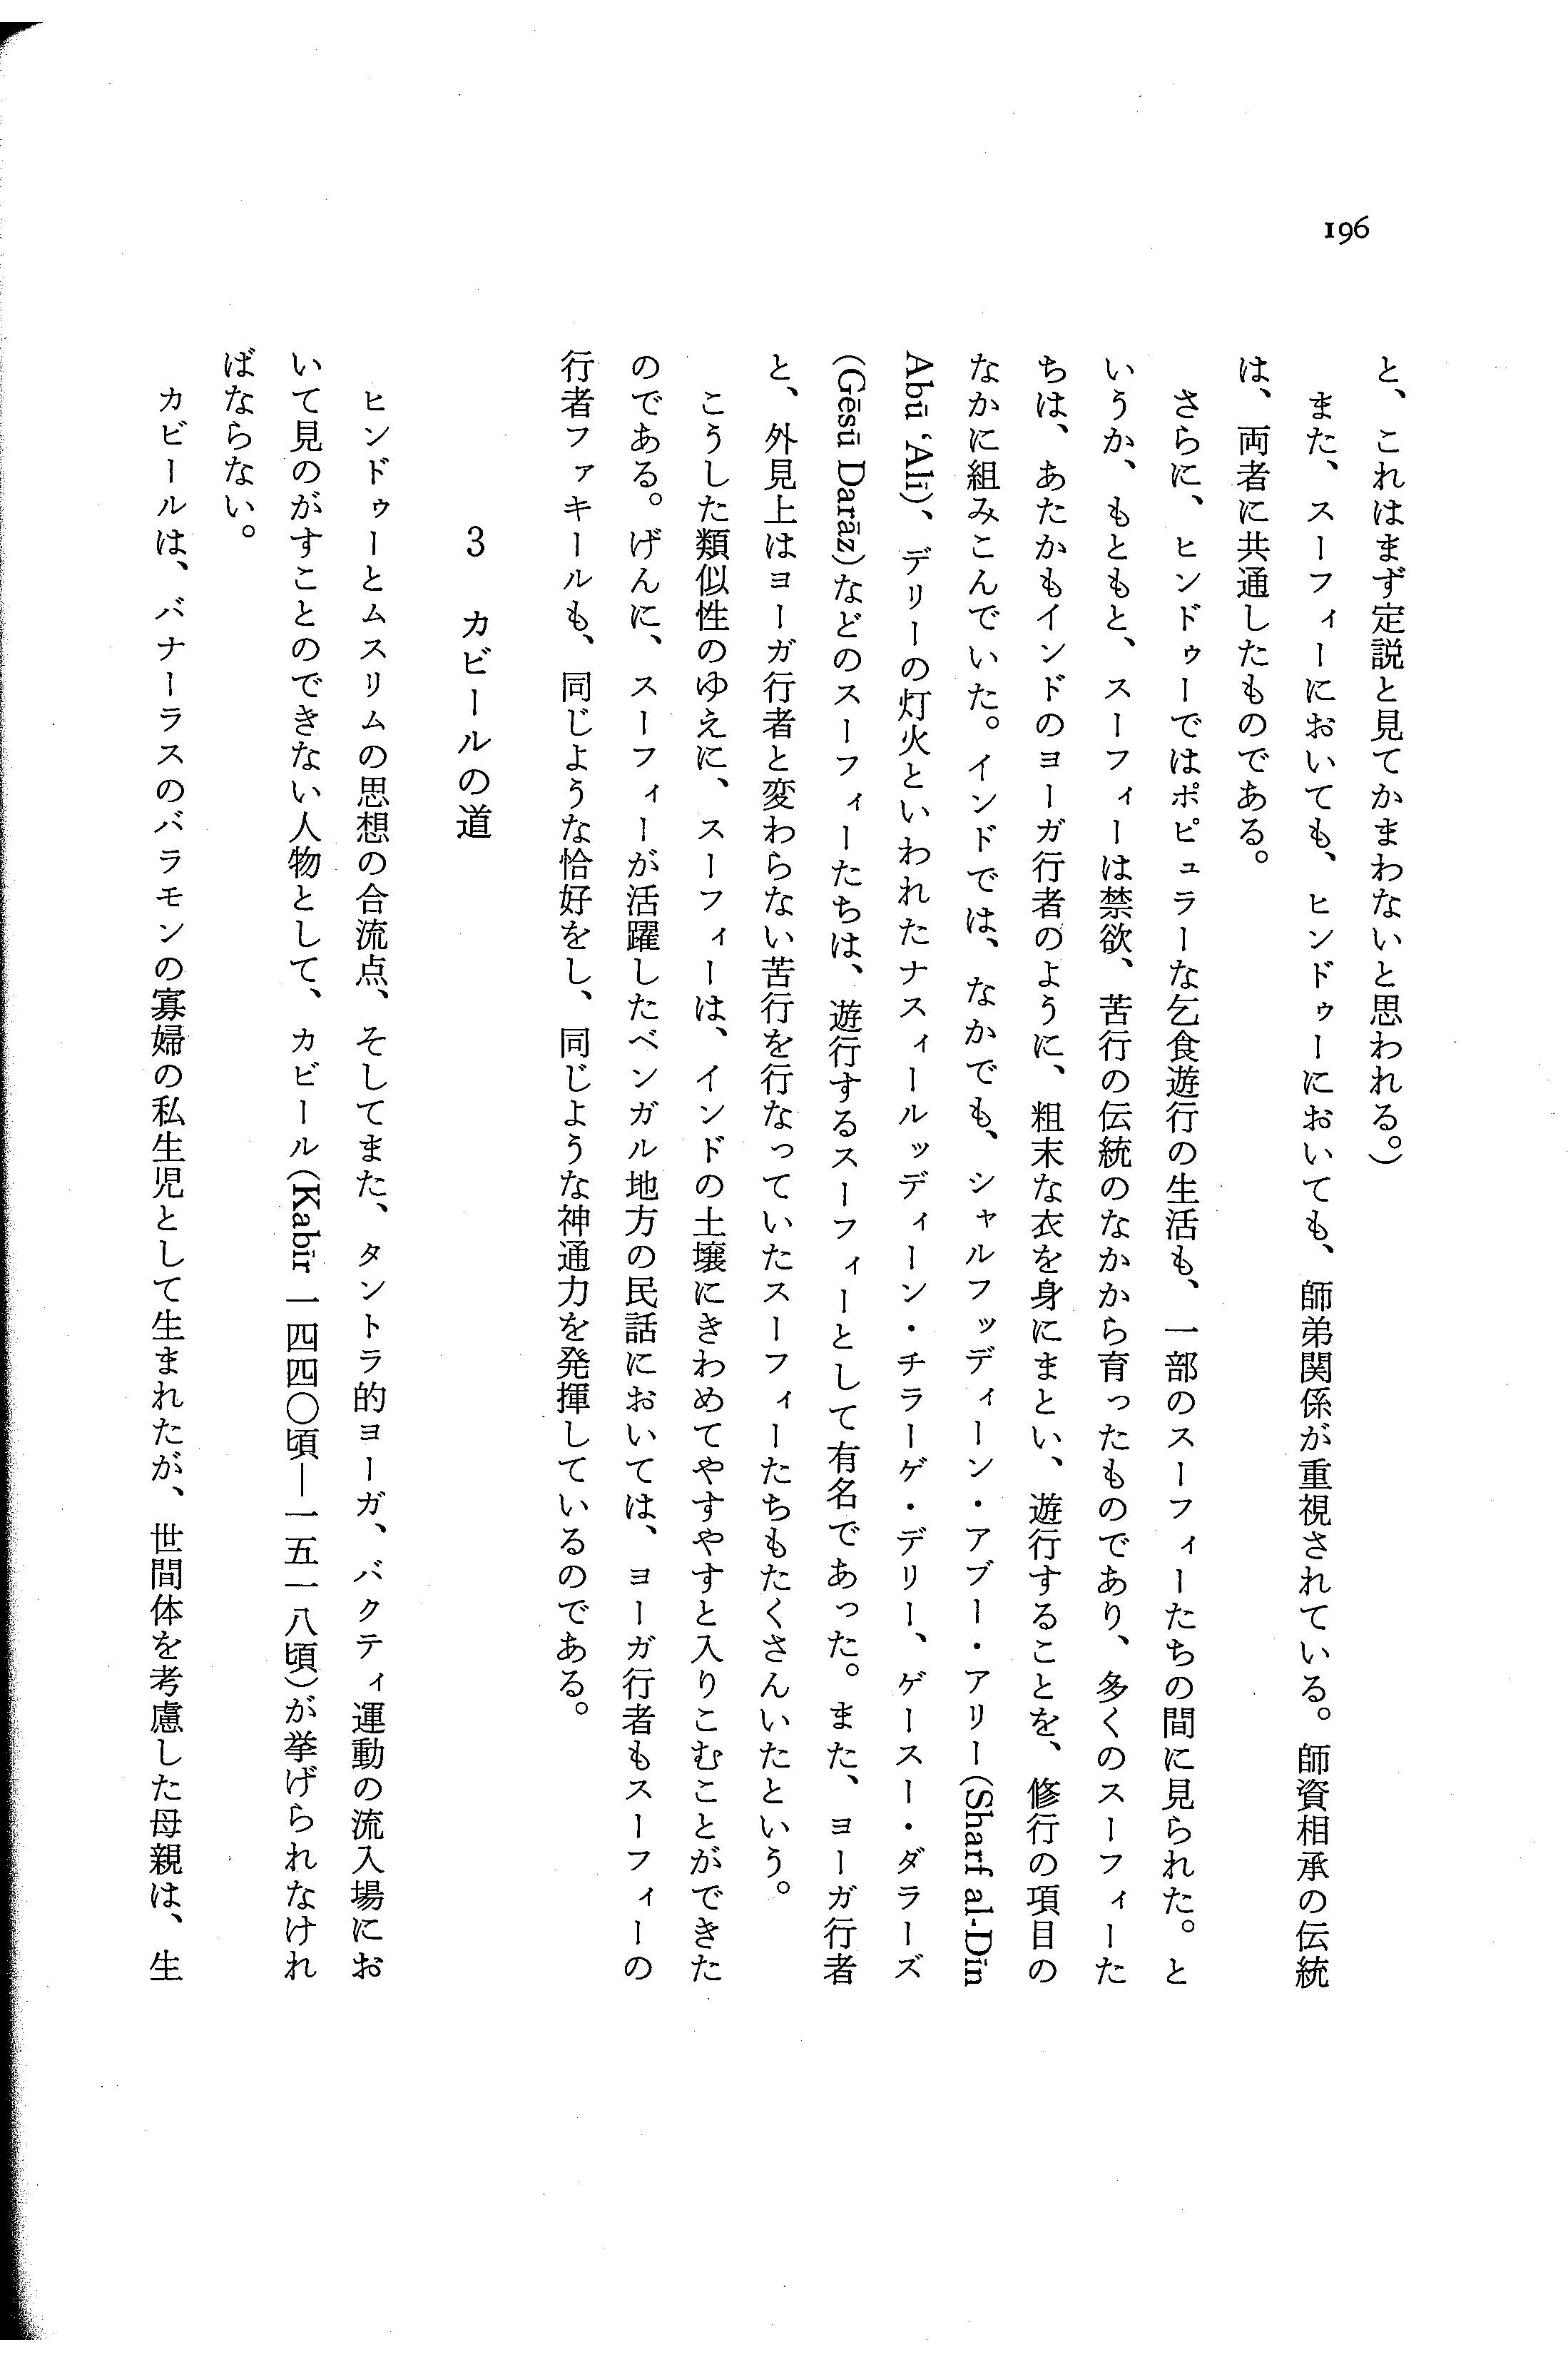 196
と、これはまず定説と見てかまわないと思われる。)
また、スーフィーにおいても、ヒンドゥーにおいても、師弟関係が重視されている。師資相承の伝統
は、両者に共通したものである。
さらに、ヒンドゥーではポピュラーな乞食遊行の生活も、一部のスーフィーたちの間に見られた。と
いうか、もともと、スーフィーは禁欲、苦行の伝統のなかから育ったものであり、多くのスーフィーた
ちは、あたかもインドのヨーガ行者のように、粗末な衣を身にまとい、遊行することを、修行の項目の
なかに組みこんでいた。インドでは、なかでも、シャルフッディーン・アブー・アリー(Sharf al-Dīn
Abū ‘Alī)、デリーの灯火といわれたナスィールッディーン・チラーゲ・デリー、ゲースー・ダラーズ
(Gēsū Darāz)などのスーフィーたちは、遊行するスーフィーとして有名であった。また、ヨーガ行者
と、外見上はヨーガ行者と変わらない苦行を行なっていたスーフィーたちもたくさんいたという。
こうした類似性のゆえに、スーフィーは、インドの土壌にきわめてやすやすと入りこむことができた
のである。げんに、スーフィーが活躍したベンガル地方の民話においては、ヨーガ行者もスーフィーの
行者ファキールも、同じような恰好をし、同じような神通力を発揮しているのである。
3 カビールの道
ヒンドゥーとムスリムの思想の合流点、そしてまた、タントラ的ヨーガ、バクティ運動の流入場にお
いて見のがすことのできない人物として、カビール(Kabīr 一四四〇頃―一五一八頃)が挙げられなけれ
ばならない。
カビールは、バナーラスのバラモンの寡婦の私生児として生まれたが、世間体を考慮した母親は、生